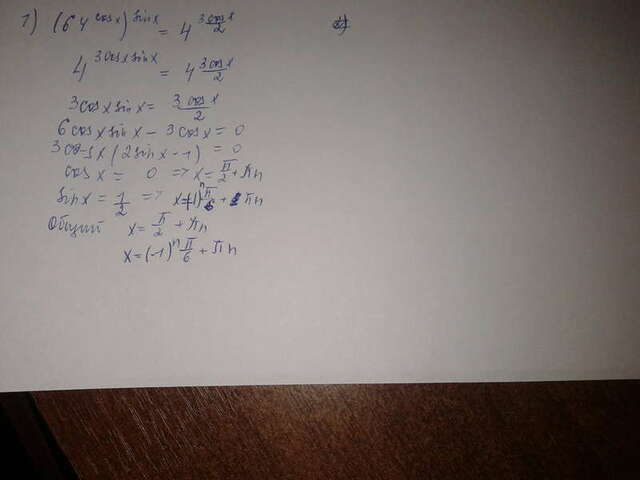 1) (64^cosx)^sinx = 4^(3cosx/2)
4^(3cosxsinx) = 4^(3cosx/2)
3cosxsinx = 3cosx/2
6cosxsinx - 3cosx = 0
3cosx(2sinx-1) = 0
cosx = 0 => x = π/2 + πn
sinx = 1/2 => x = (-1)^n π/6 + πn
Общий x = π/2 + πn
x = (-1)^n π/6 + πn